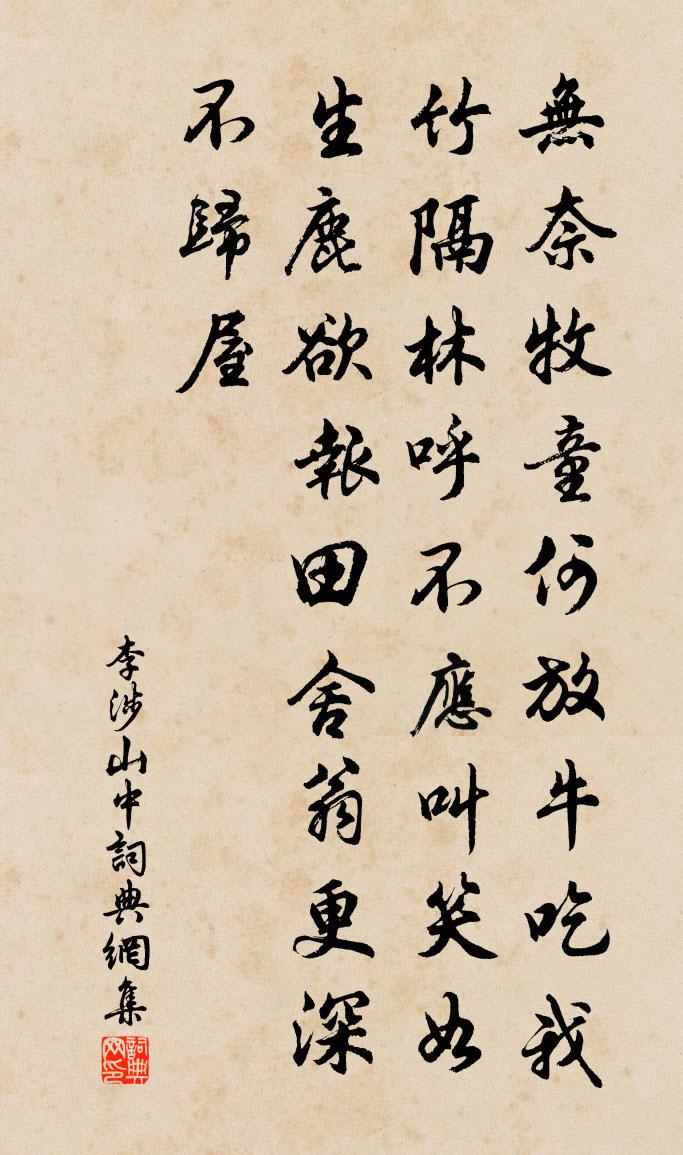 無奈牧童何放牛吃我
竹隔林呼不應叫笑如
生鹿欲報田舍翁更深
不歸屋
李涉山中詞典網集
詞典网印